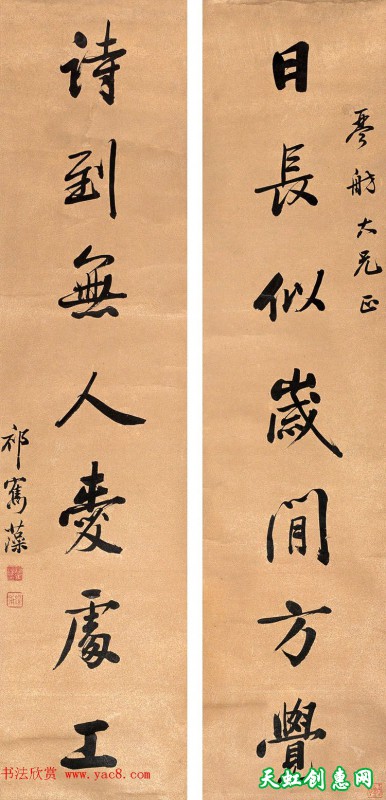 琴舫大兄正
日長似歲閒方覺
詩到無人愛處工
祁寯藻
书法欣赏
www.yac8.com
天虹创惠网